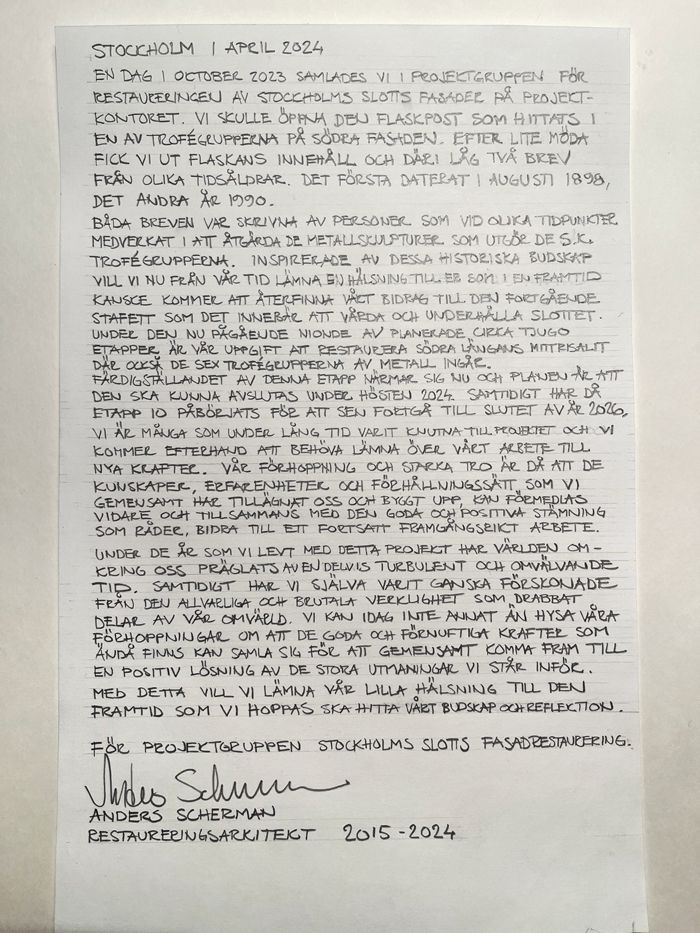 STOCKHOLM 1 APRIL 2024
EN DAG I OCTOBER 2023 SAMLADES VI I PROJEKTGRUPPEN FÖR
RESTAURERINGEN AV STOCKHOLMS SLOTTS FASADER PÅ PROJEKT-
KONTORET. VI SKULLE ÖPPNA DEN FLASKPOST SOM HITTATS I
EN AV TROFÉGRUPPERNA PÅ SÖDRA FASADEN. EFTER LITE MÖDA
FICK VI UT FLASKANS INNEHÅLL OCH DÄRI LÅG TVÅ BREV
FRÅN OLIKA TIDSÅLDRAR. DET FÖRSTA DATERAT I AUGUSTI 1898,
DET ANDRA ÅR 1990.
BÅDA BREVEN VAR SKRIVNA AV PERSONER SOM VID OLIKA TIDPUNKTER
MEDVERKAT I ATT ÅTGÄRDA DE METALLSKULPTURER SOM UTGÖR DE S.K.
TROFÉGRUPPERNA. INSPIRERADE AV DESSA HISTORISKA BUDSKAP
VILL VI NU FRÅN VÅR TID LÄMNA EN HÄLSNING TILL ER SOM I EN FRAMTID
KANSKE KOMMER ATT ÅTERFINNA VÅRT BIDRAG TILL DEN FORTGÅENDE
STAFETT SOM DET INNEBÄR ATT VÅRDA OCH UNDERHÅLLA SLOTTET.
UNDER DEN NU PÅGÅENDE NIONDE AV PLANERADE CIRKA TJUGO
ETAPPER ÄR VÅR UPPGIFT ATT RESTAURERA SÖDRA LÄNGANS MITTRISALIT
DÄR OCKSÅ DE SEX TROFÉGRUPPERNA AV METALL INGÅR.
FÄRDIGSTÄLLANDET AV DENNA ETAPP NÄRMAR SIG NU OCH PLANEN ÄR ATT
DEN SKA KUNNA AVSLUTAS UNDER HÖSTEN 2024. SAMTIDIGT HAR DÅ
ETAPP 10 PÅBÖRJATS FÖR ATT SEN FORTGÅ TILL SLUTET AV ÅR 2026.
VI ÄR MÅNGA SOM UNDER LÅNG TID VARIT KNUTNA TILL PROJEKTET OCH VI
KOMMER EFTERHAND ATT BEHÖVA LÄMNA ÖVER VÅRT ARBETE TILL
NYA KRAFTER. VÅR FÖRHOPPNING OCH STARKA TRO ÄR DÅ ATT DE
KUNSKAPER, ERFARENHETER OCH FÖRHÅLLNINGSSÄTT, SOM VI
GEMENSAMT HAR TILLÄGNAT OSS OCH BYGGT UPP, KAN FÖRMEDLAS
VIDARE OCH TILLSAMMANS MED DEN GODA OCH POSITIVA STÄMNING
SOM RÅDER, BIDRA TILL ETT FORTSATT FRAMGÅNGSRIKT ARBETE.
UNDER DE ÅR SOM VI LEVT MED DETTA PROJEKT HAR VÄRLDEN OM-
KRING OSS PRÄGLATS AV EN DELVIS TURBULENT OCH OMVÄLVANDE
TID. SAMTIDIGT HAR VI SJÄLVA VARIT GANSKA FÖRSKONADE
FRÅN DEN ALLVARLIGA OCH BRUTALA VERKLIGHET SOM DRABBAT
DELAR AV VÅR OMVÄRLD. VI KAN IDAG INTE ANNAT ÄN HYSA VÅRA
FÖRHOPPNINGAR OM ATT DE GODA OCH FÖRNUFTIGA KRAFTER SOM
ÄNDÅ FINNS KAN SAMLA SIG FÖR ATT GEMENSAMT KOMMA FRAM TILL
EN POSITIV LÖSNING AV DE STORA UTMANINGAR VI STÅR INFÖR.
MED DETTA VILL VI LÄMNA VÅR LILLA HÄLSNING TILL DEN
FRAMTID SOM VI HOPPAS SKA HITTA VÅRT BUDSKAP OCH REFLEKTION.
FÖR PROJEKTGRUPPEN STOCKHOLMS SLOTTS FASADRESTAURERING.
Anders Scherman
ANDERS SCHERMAN
RESTAURERINGSARKITEKT 2015-2024